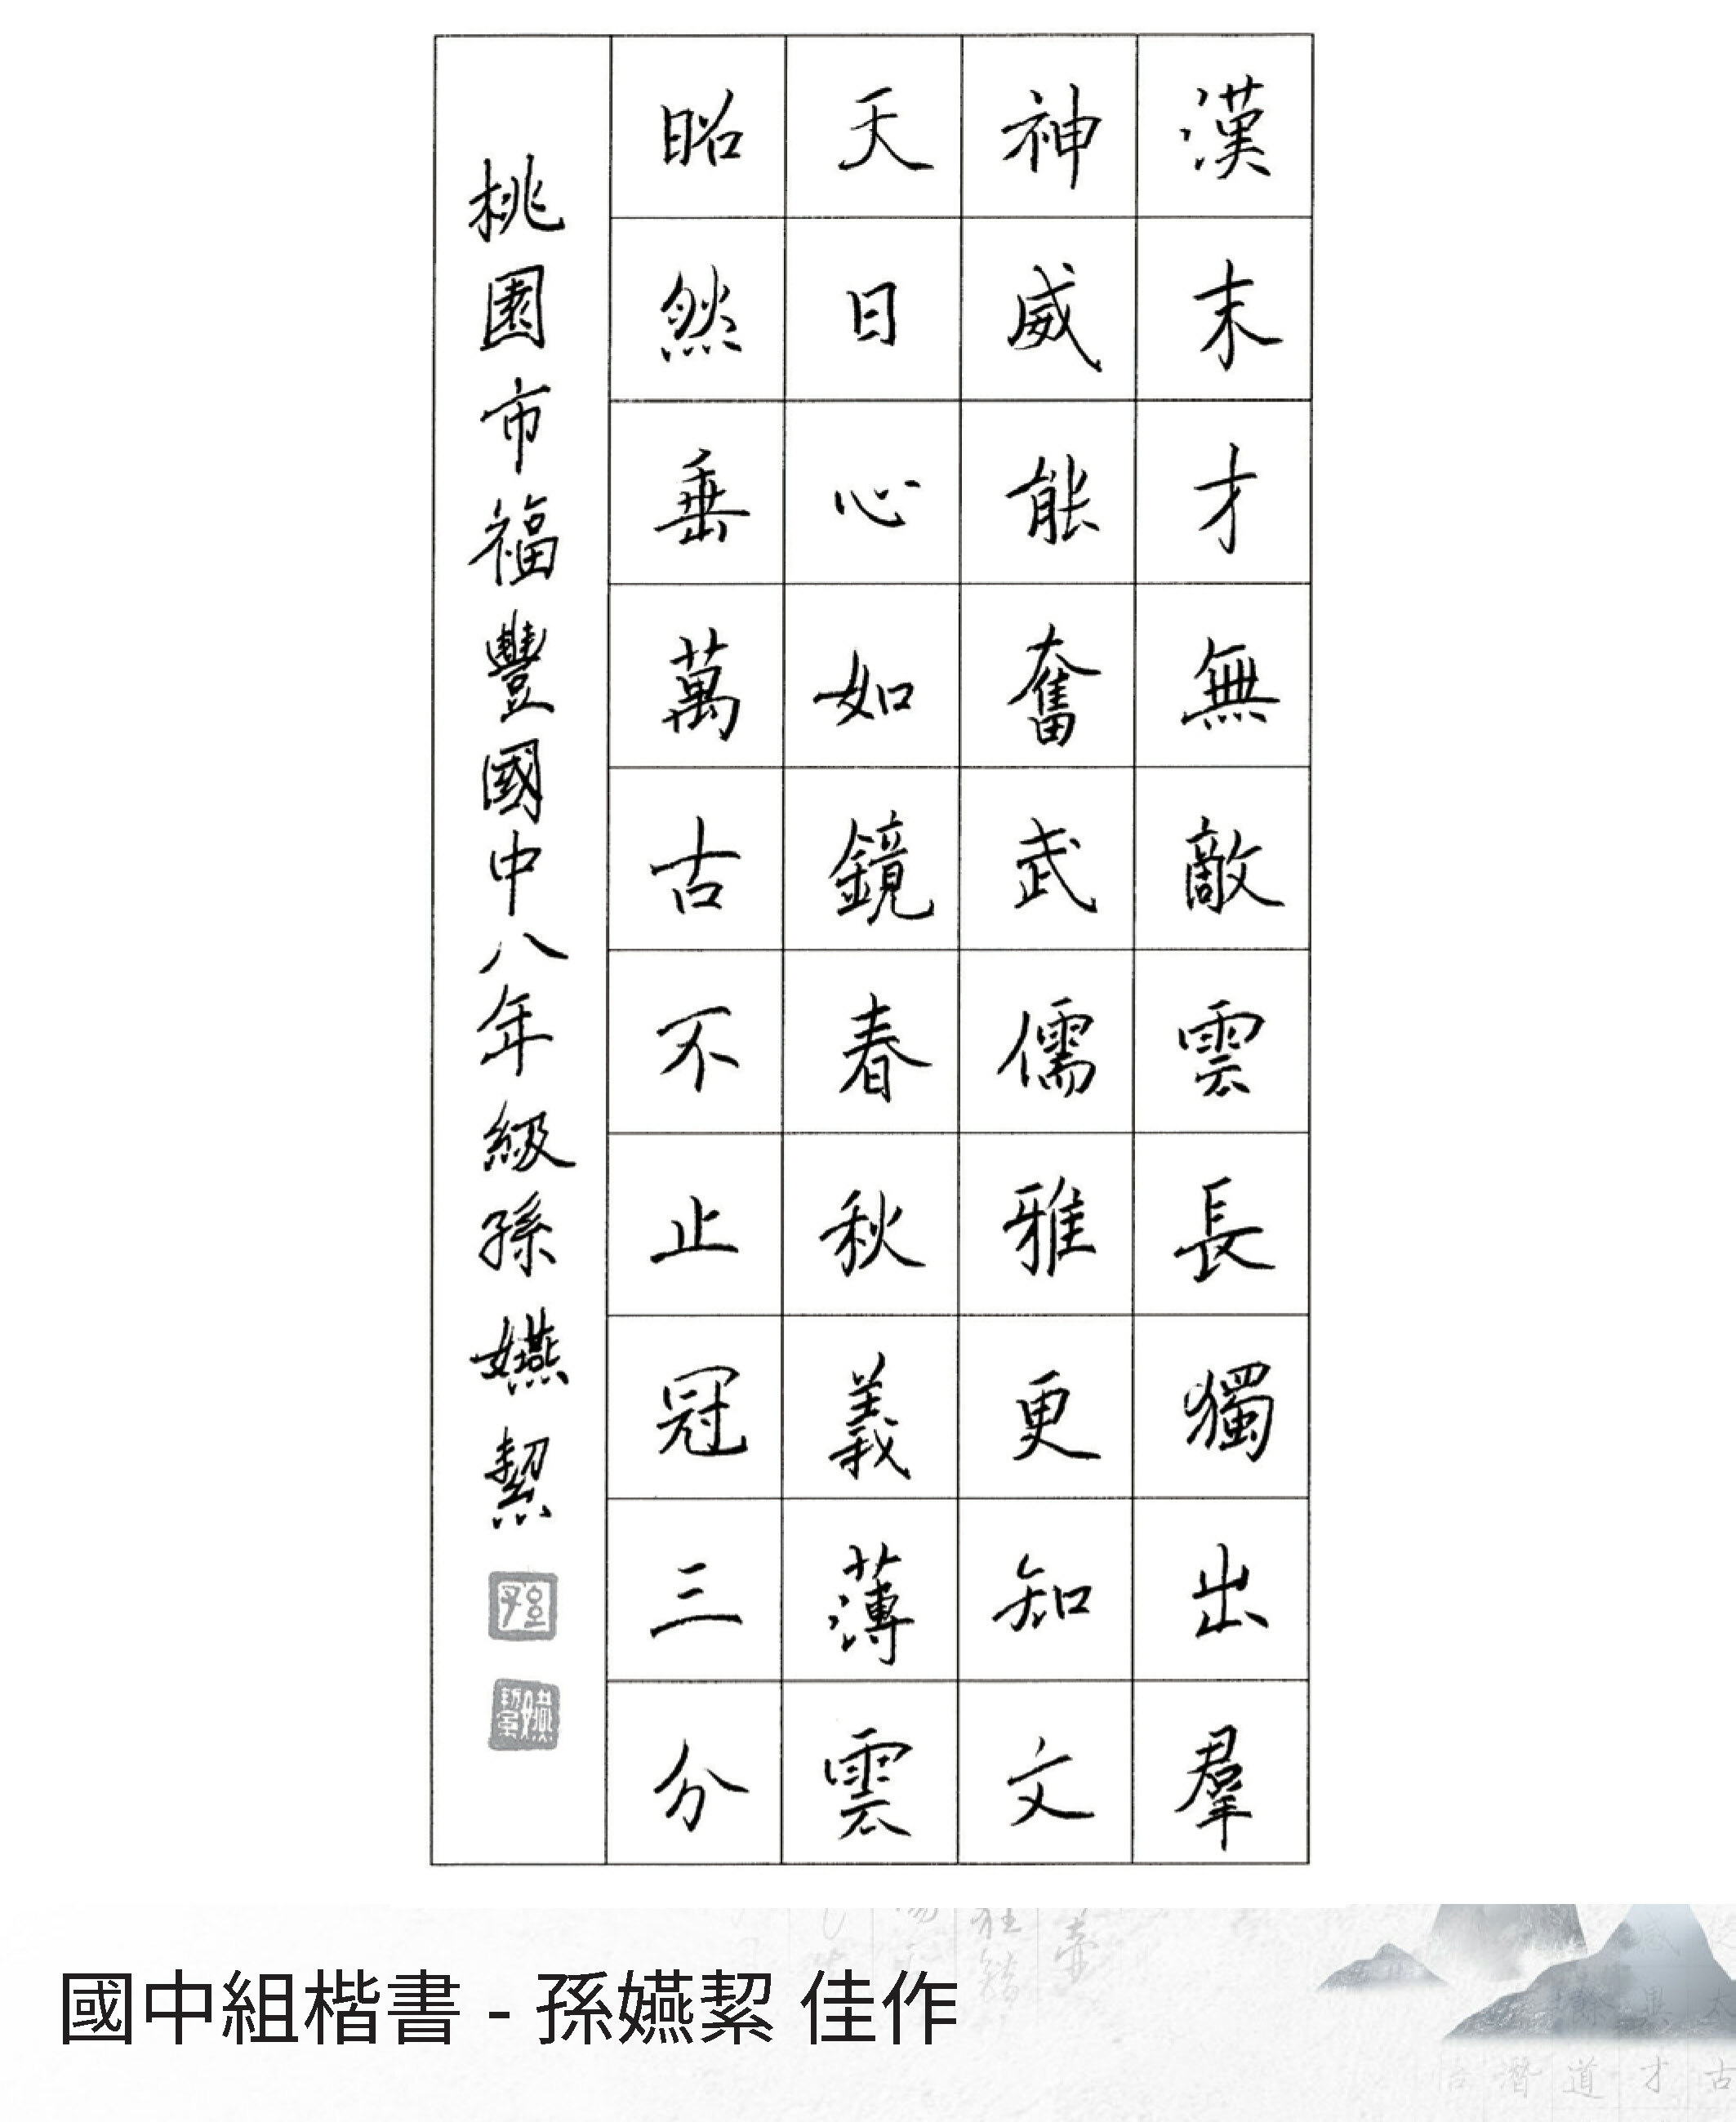 漢末才無敵雲長獨出羣
神威能奮武儒雅更知文
天日心如鏡春秋義薄雲
昭然垂萬古不止冠三分
桃園市福豐國中八年級孫嬿絜
國中組楷書 - 孫嬿絜 佳作